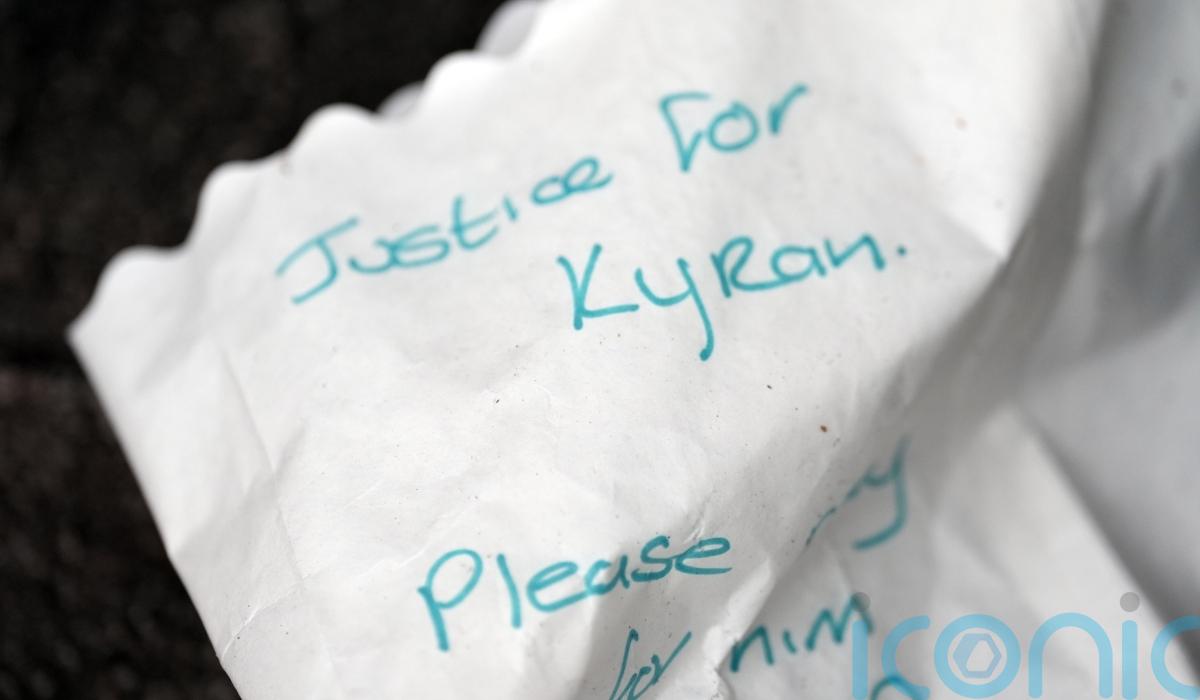 Justice for
Kyran.
Please
for him
iconic